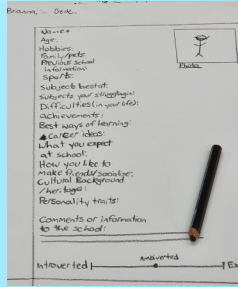 Brianna,
Name:
Age:
Hobbies:
Family/pets
Previous school
information:
Sports:
Photo
Subjects best at:
Subjects your struggling in:
Difficulties (in your life):
achievements:
Best ways of learning:
Career ideas:
What you expect
at school:
How you like to
make friends/socialize:
Cultural Background
/heritage:
Personality traits:
Comments or information
to the school:
Ambiverted
introverted